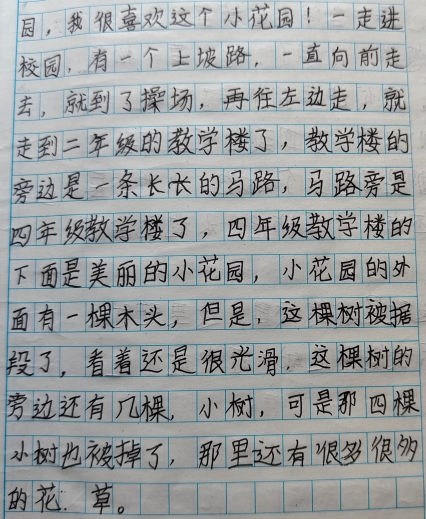 园，我很喜欢这个小花园！一走进
校园，有一个上坡路，一直向前走
去，就到了操场，再往左边走，就
走到二年级的教学楼了，教学楼的
旁边是一条长长的马路，马路旁是
四年级教学楼了，四年级教学楼的
下面是美丽的小花园，小花园的外
面有一棵木头，但是，这棵树被据
段了，看着还是很光滑，这棵树的
旁边还有几棵，小树，可是那四棵
小树也被掉了，那里还有很多很多
的花．草。